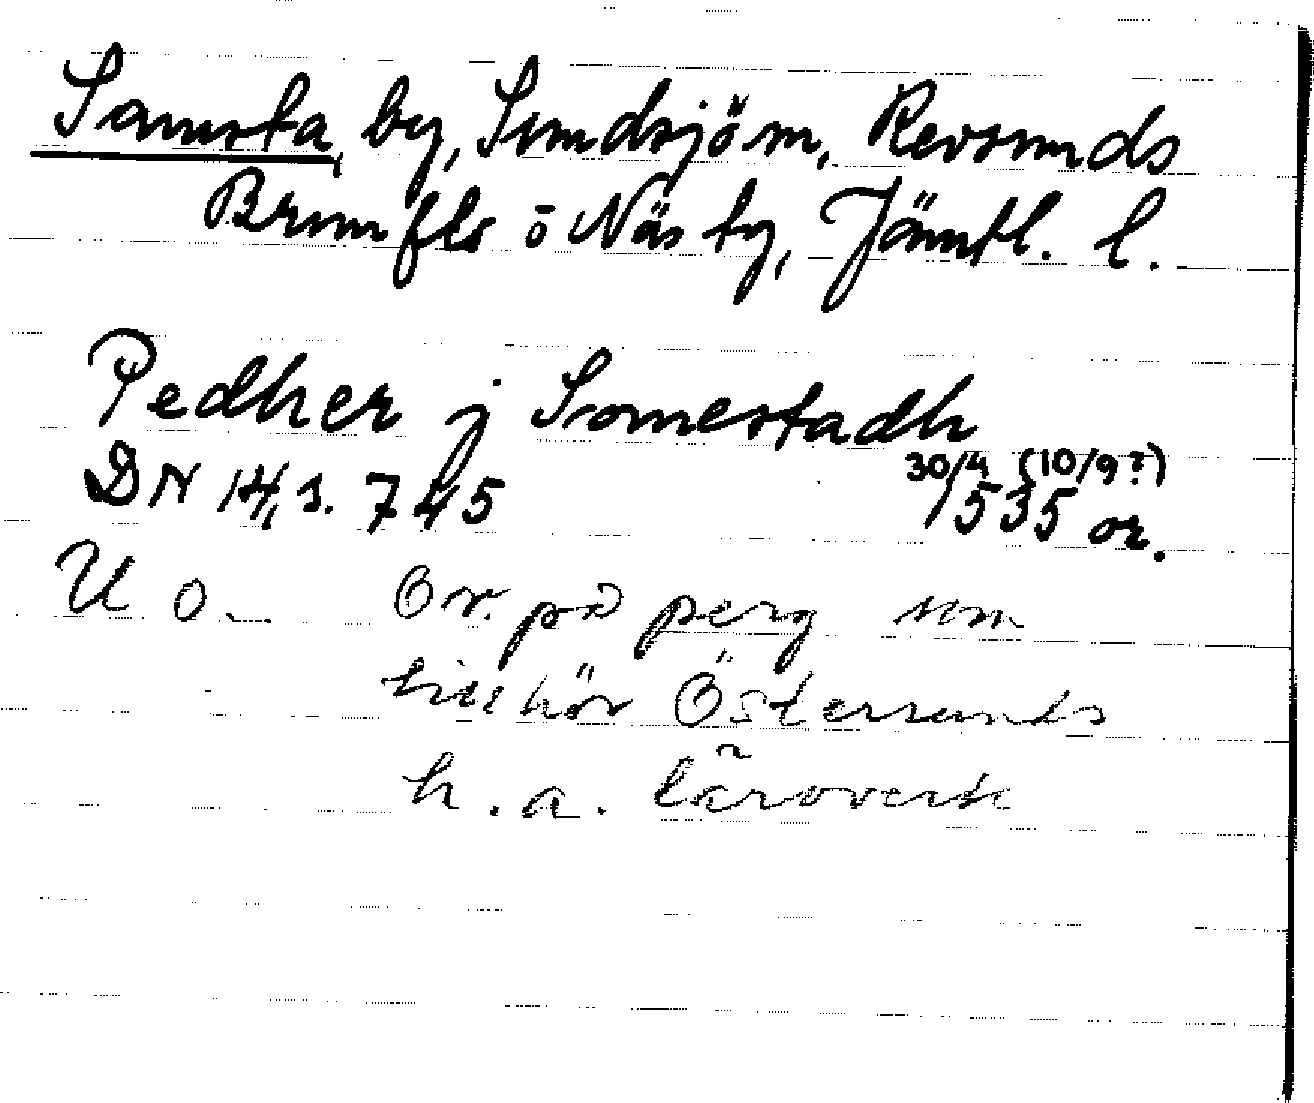 Sannsta, by, Sundsjö sn, Revsunds
Brunflo o Näs tg, Jämtl. l.
Pedher j Somestadh
DN 14, s. 745
30/4 (10/9?)
1535 or.
U o. Or. på perg som
tillhör Östersunds
h. a. läroverk